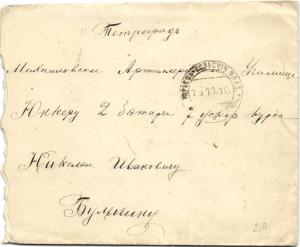 Петроградъ
Михайловское Артиллер Училище
Юнкеру 2 батареи ускор курса
Николаю Ивановичу
Булыгину